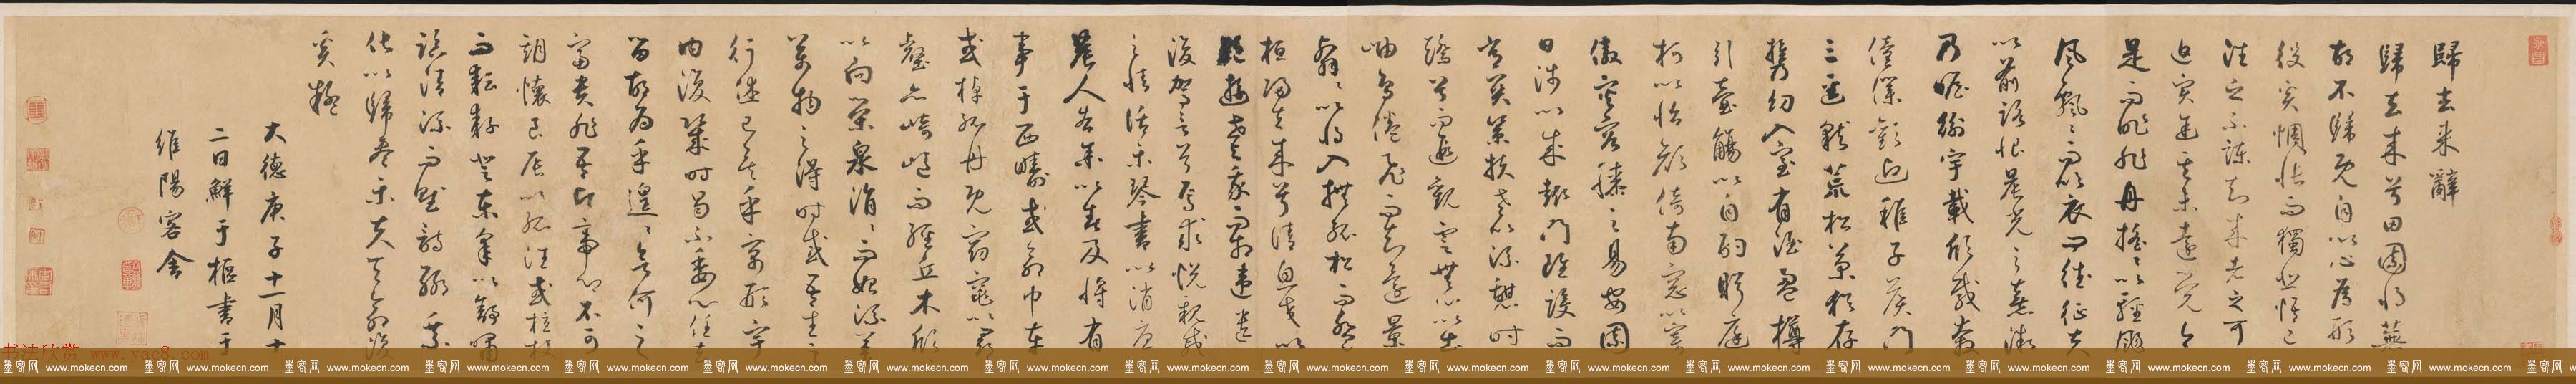 歸去来辭
歸去来兮田園将蕪
胡不歸既自以心爲形
役奚惆悵而獨悲悟已
往之不諫知来者之可
追實迷其未遠覺今
是而昨非舟摇〻以輕颺
風飄〻而吹衣問征夫
以前路恨晨光之熹微
乃瞻衡宇載欣載奔
僮僕歡迎稚子候門
三逕就荒松菊猶存
攜幼入室有酒盈樽
引壺觴以自酌眄庭
柯以怡顔倚南窓以寄
傲審容膝之易安園
日涉以成趣門雖設而
常關策扶老以流憩時
矯首而遐觀雲無心以出
岫鳥倦飛而知還景
翳〻以将入撫孤松而盤
桓歸去来兮請息交以
絶遊世與我而相遺
復駕言兮焉求悦親戚
之情話樂琴書以消憂
農人告余以春及将有
事于西疇或命巾車
或棹孤舟既窈窕以尋
壑亦崎嶇而經丘木欣〻
以向榮泉涓〻而始流羨
萬物之得時感吾生之
行休已矣乎寓形宇
内復幾時曷不委心任去
留胡爲乎遑〻欲何之
富貴非吾願帝鄉不可
期懷良辰以孤往或植杖
而耘耔登東皋以舒嘯
臨清流而賦詩聊乘
化以歸盡樂夫天命復
奚疑
大德庚子十一月十
二日鮮于樞書于
維陽客舍
书法欣赏 www.yac8.com
墨客网 www.mokecn.com